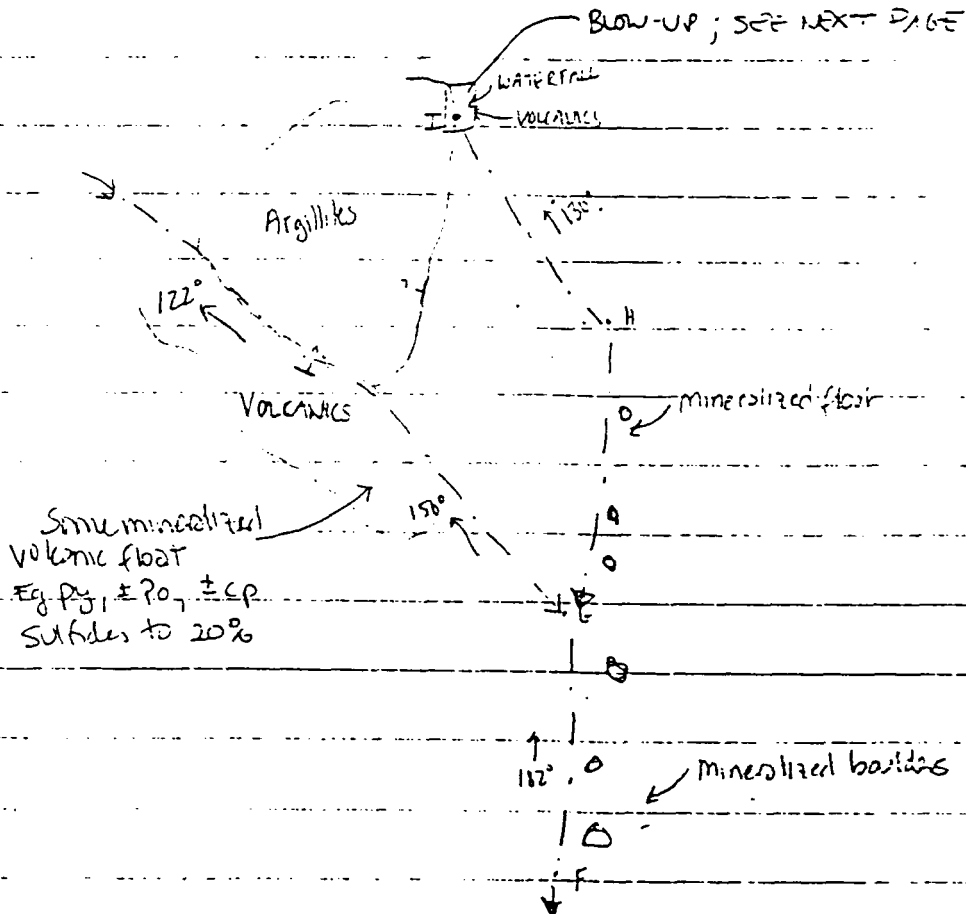 BLOW-UP; SEE NEXT PAGE
WATERFALL
I
VOLCANICS
Argillites
130°
122°
H
VOLCANICS
mineralized float
Some mineralized
volcanic float
Eg py, ± Po, ± cp
Sulfides to 20%
150°
E
182°
mineralized boulders
F